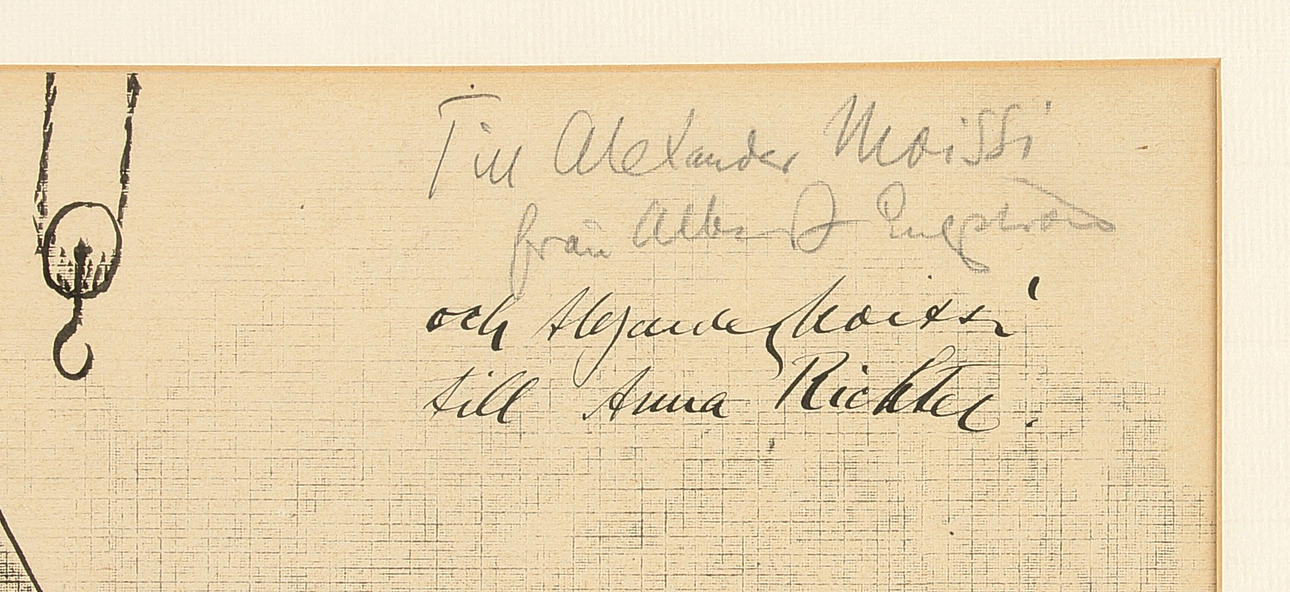 Till Alexander Moissi
från Albert Engström
och Alexander Moissi
till Anna Richter.